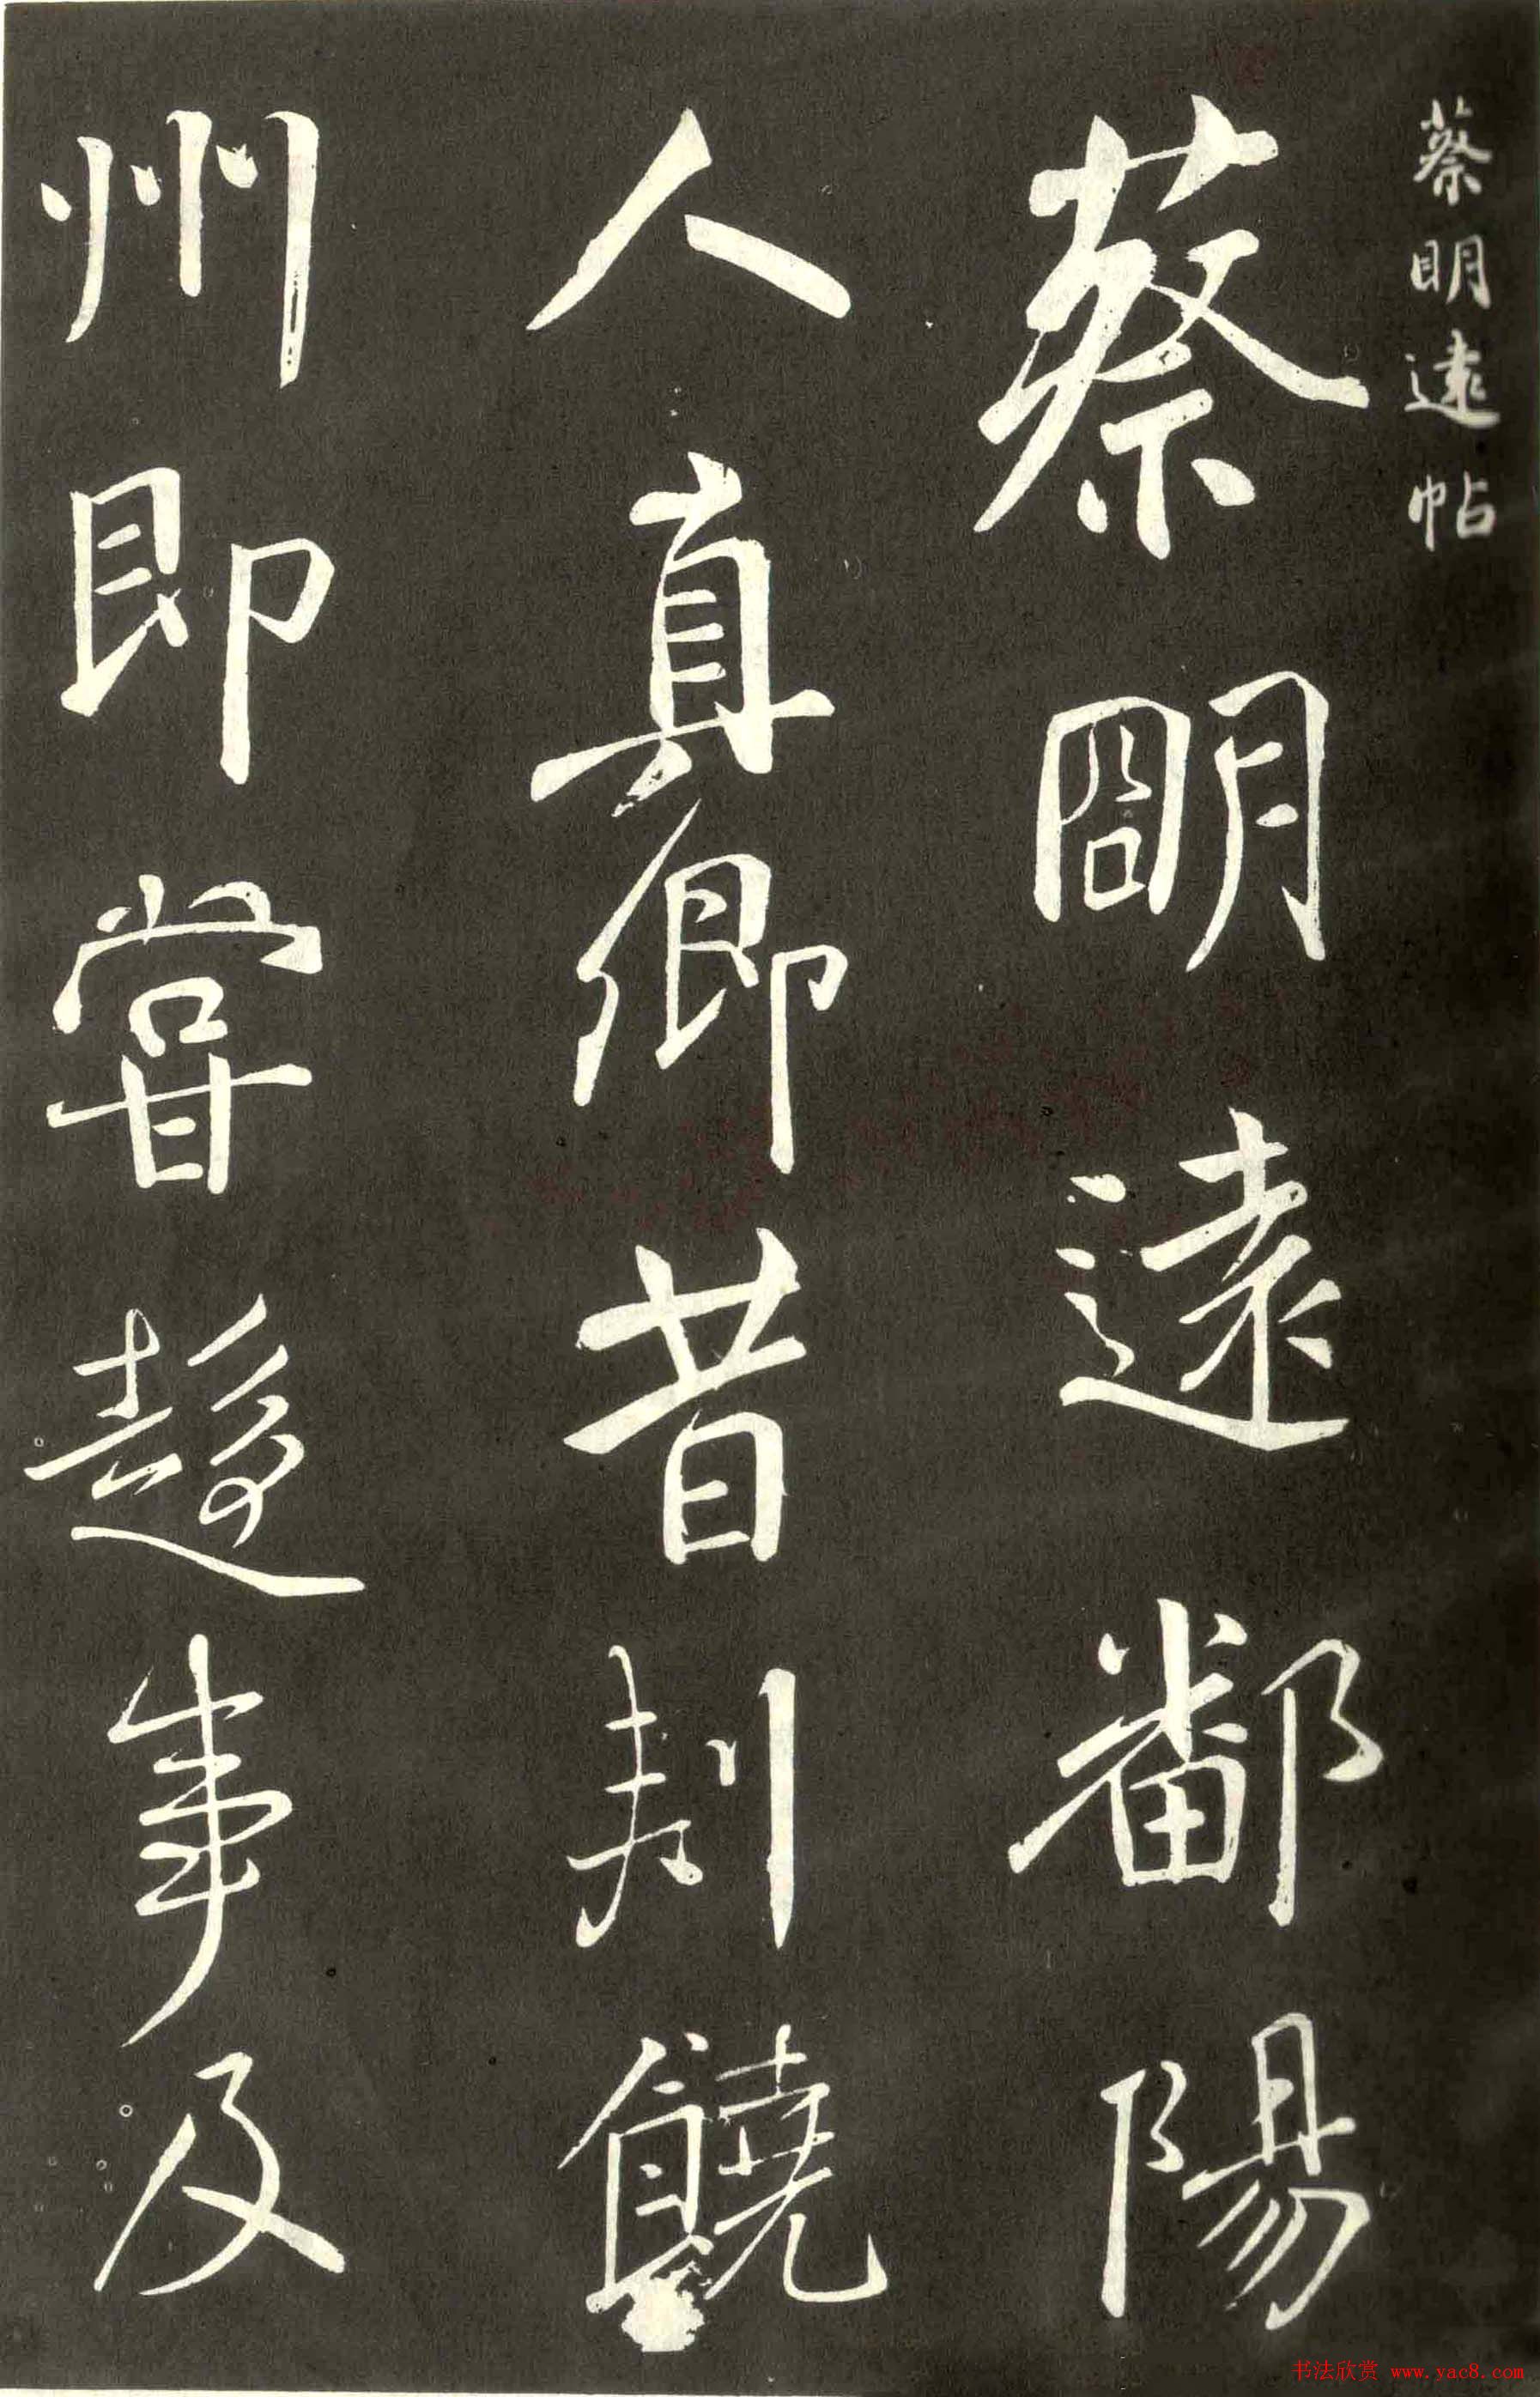 蔡明遠帖
蔡明遠鄱陽
人真卿昔刺饒
州即嘗趨事及
书法欣赏 www.yac8.com